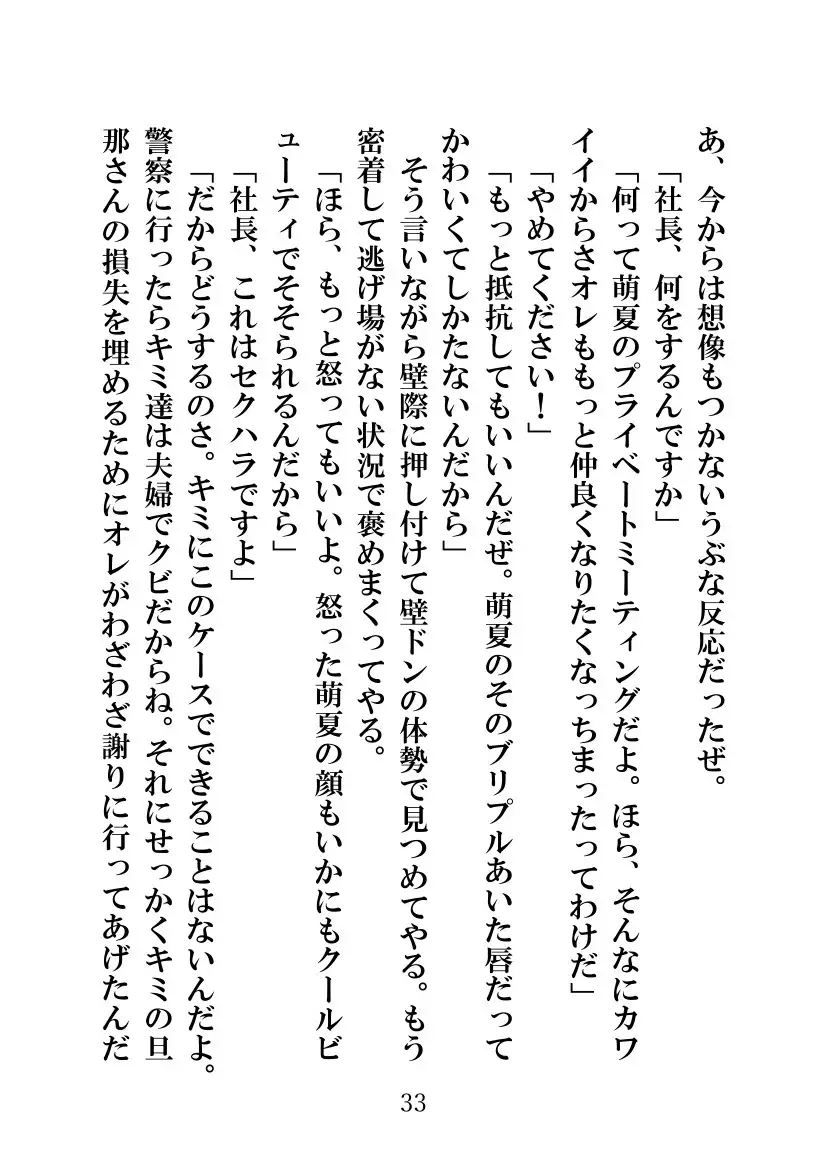 あ、今からは想像もつかないうぶな反応だったぜ。
「社長、何をするんですか」
「何って萌夏のプライベートミーティングだよ。ほら、そんなにカワ
イイからさオレももっと仲良くなりたくなっちまったってわけだ」
「やめてください！」
「もっと抵抗してもいいんだぜ。萌夏のそのブリプルあいた唇だって
かわいくてしかたないんだから」
そう言いながら壁際に押し付けて壁ドンの体勢で見つめてやる。もう
密着して逃げ場がない状況で褒めまくってやる。
「ほら、もっと怒ってもいいよ。怒った萌夏の顔もいかにもクールビ
ューティでそそられるんだから」
「社長、これはセクハラですよ」
「だからどうするのさ。キミにこのケースでできることはないんだよ。
警察に行ったらキミ達は夫婦でクビだからね。それにせっかくキミの旦
那さんの損失を埋めるためにオレがわざわざ謝りに行ってあげたんだ
33